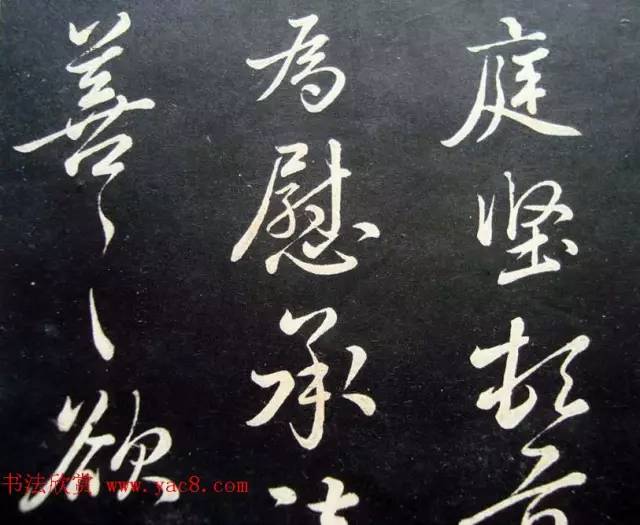 庭坚頓首
為慰承
善〻〻欲
书法欣赏 www.yac8.com